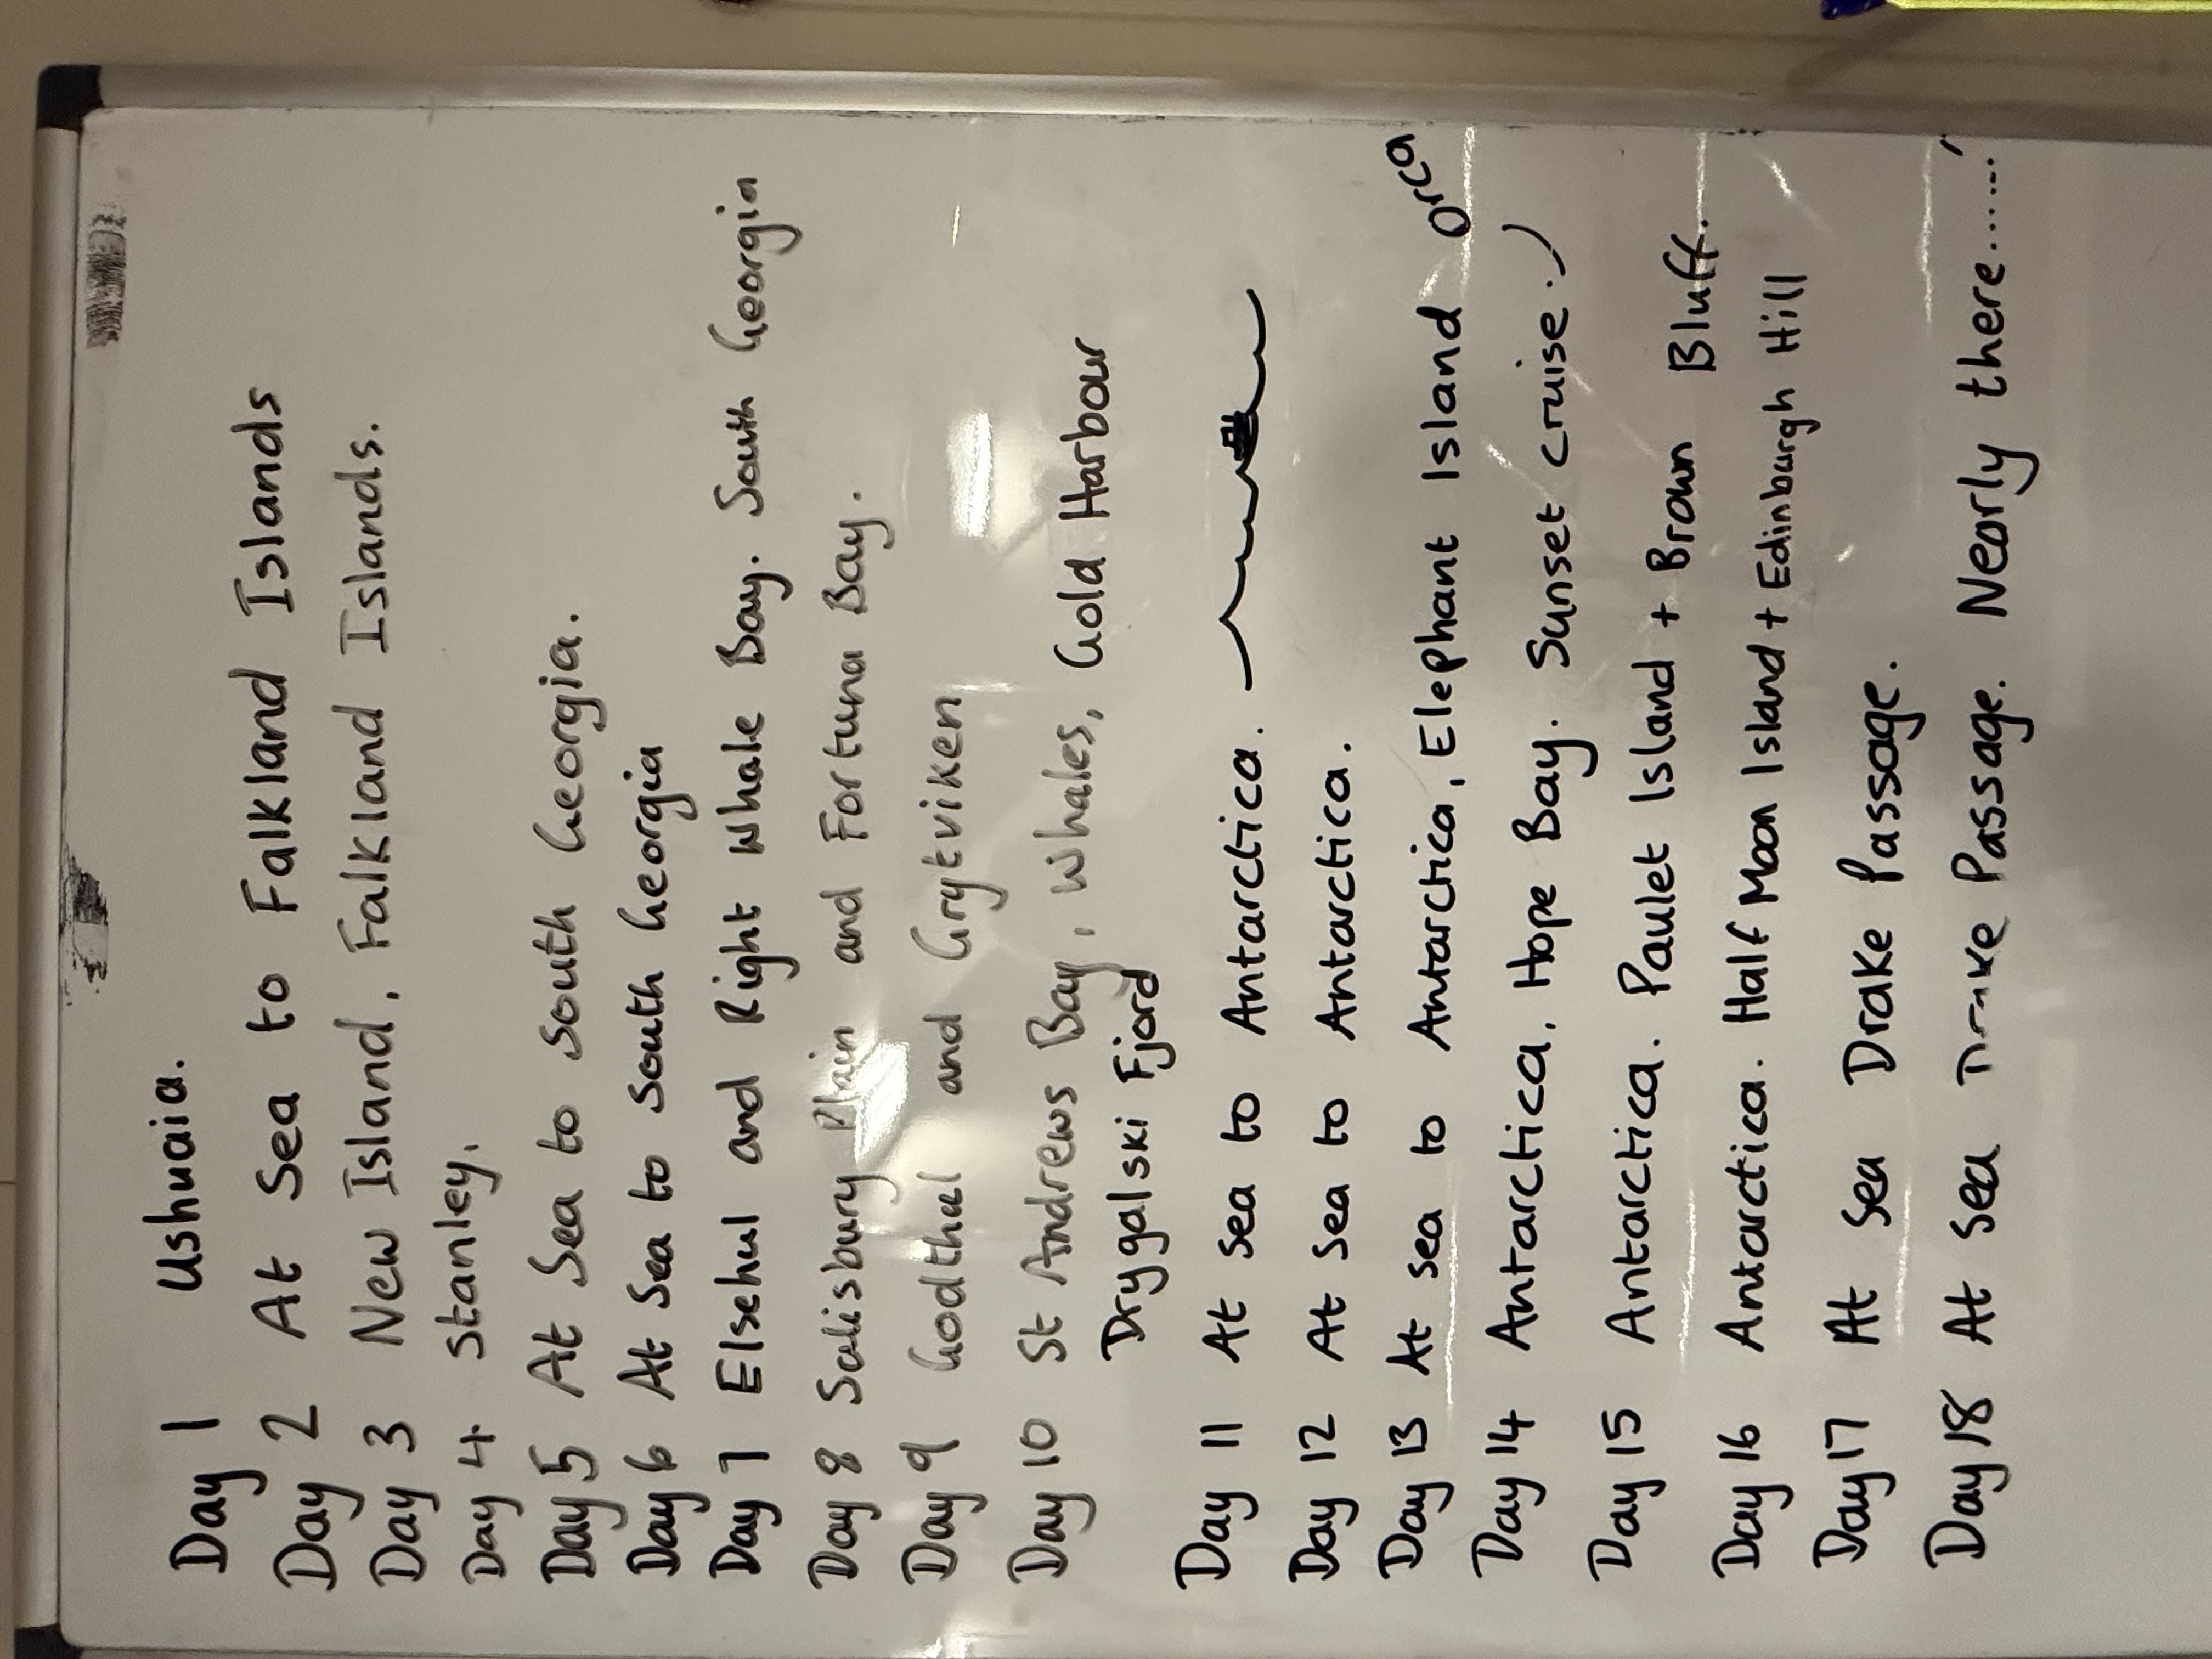 Day 1 Ushuaia.
Day 2 At Sea to Falkland Islands
Day 3 New Island, Falkland Islands.
Day 4 Stanley.
Day 5 At Sea to South Georgia.
Day 6 At Sea to South Georgia
Day 7 Elsehul and Right Whale Bay. South Georgia
Day 8 Salisbury Plain and Fortuna Bay.
Day 9 Godthul and Grytviken
Day 10 St Andrews Bay, Whales, Gold Harbour
Drygalski Fjord
Day 11 At sea to Antarctica.
Day 12 At sea to Antarctica.
Day 13 At sea to Antarctica, Elephant Island Orca
Day 14 Antarctica, Hope Bay. Sunset cruise :)
Day 15 Antarctica. Paulet Island + Brown Bluff.
Day 16 Antarctica. Half Moon Island + Edinburgh Hill
Day 17 At sea Drake Passage.
Day 18 At sea Drake Passage. Nearly there......